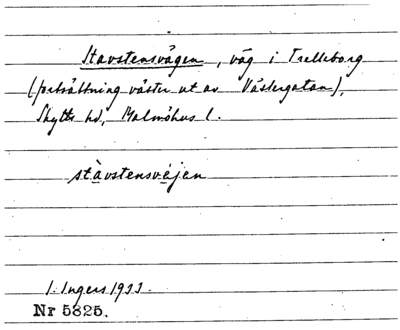 Stavstensvägen, väg i Trelleborg
(fortsättning väster ut av Västergatan),
Skytts hd, Malmöhus l.
stàvstensvä̀jen
I. Ingers 1933.
Nr 5825.